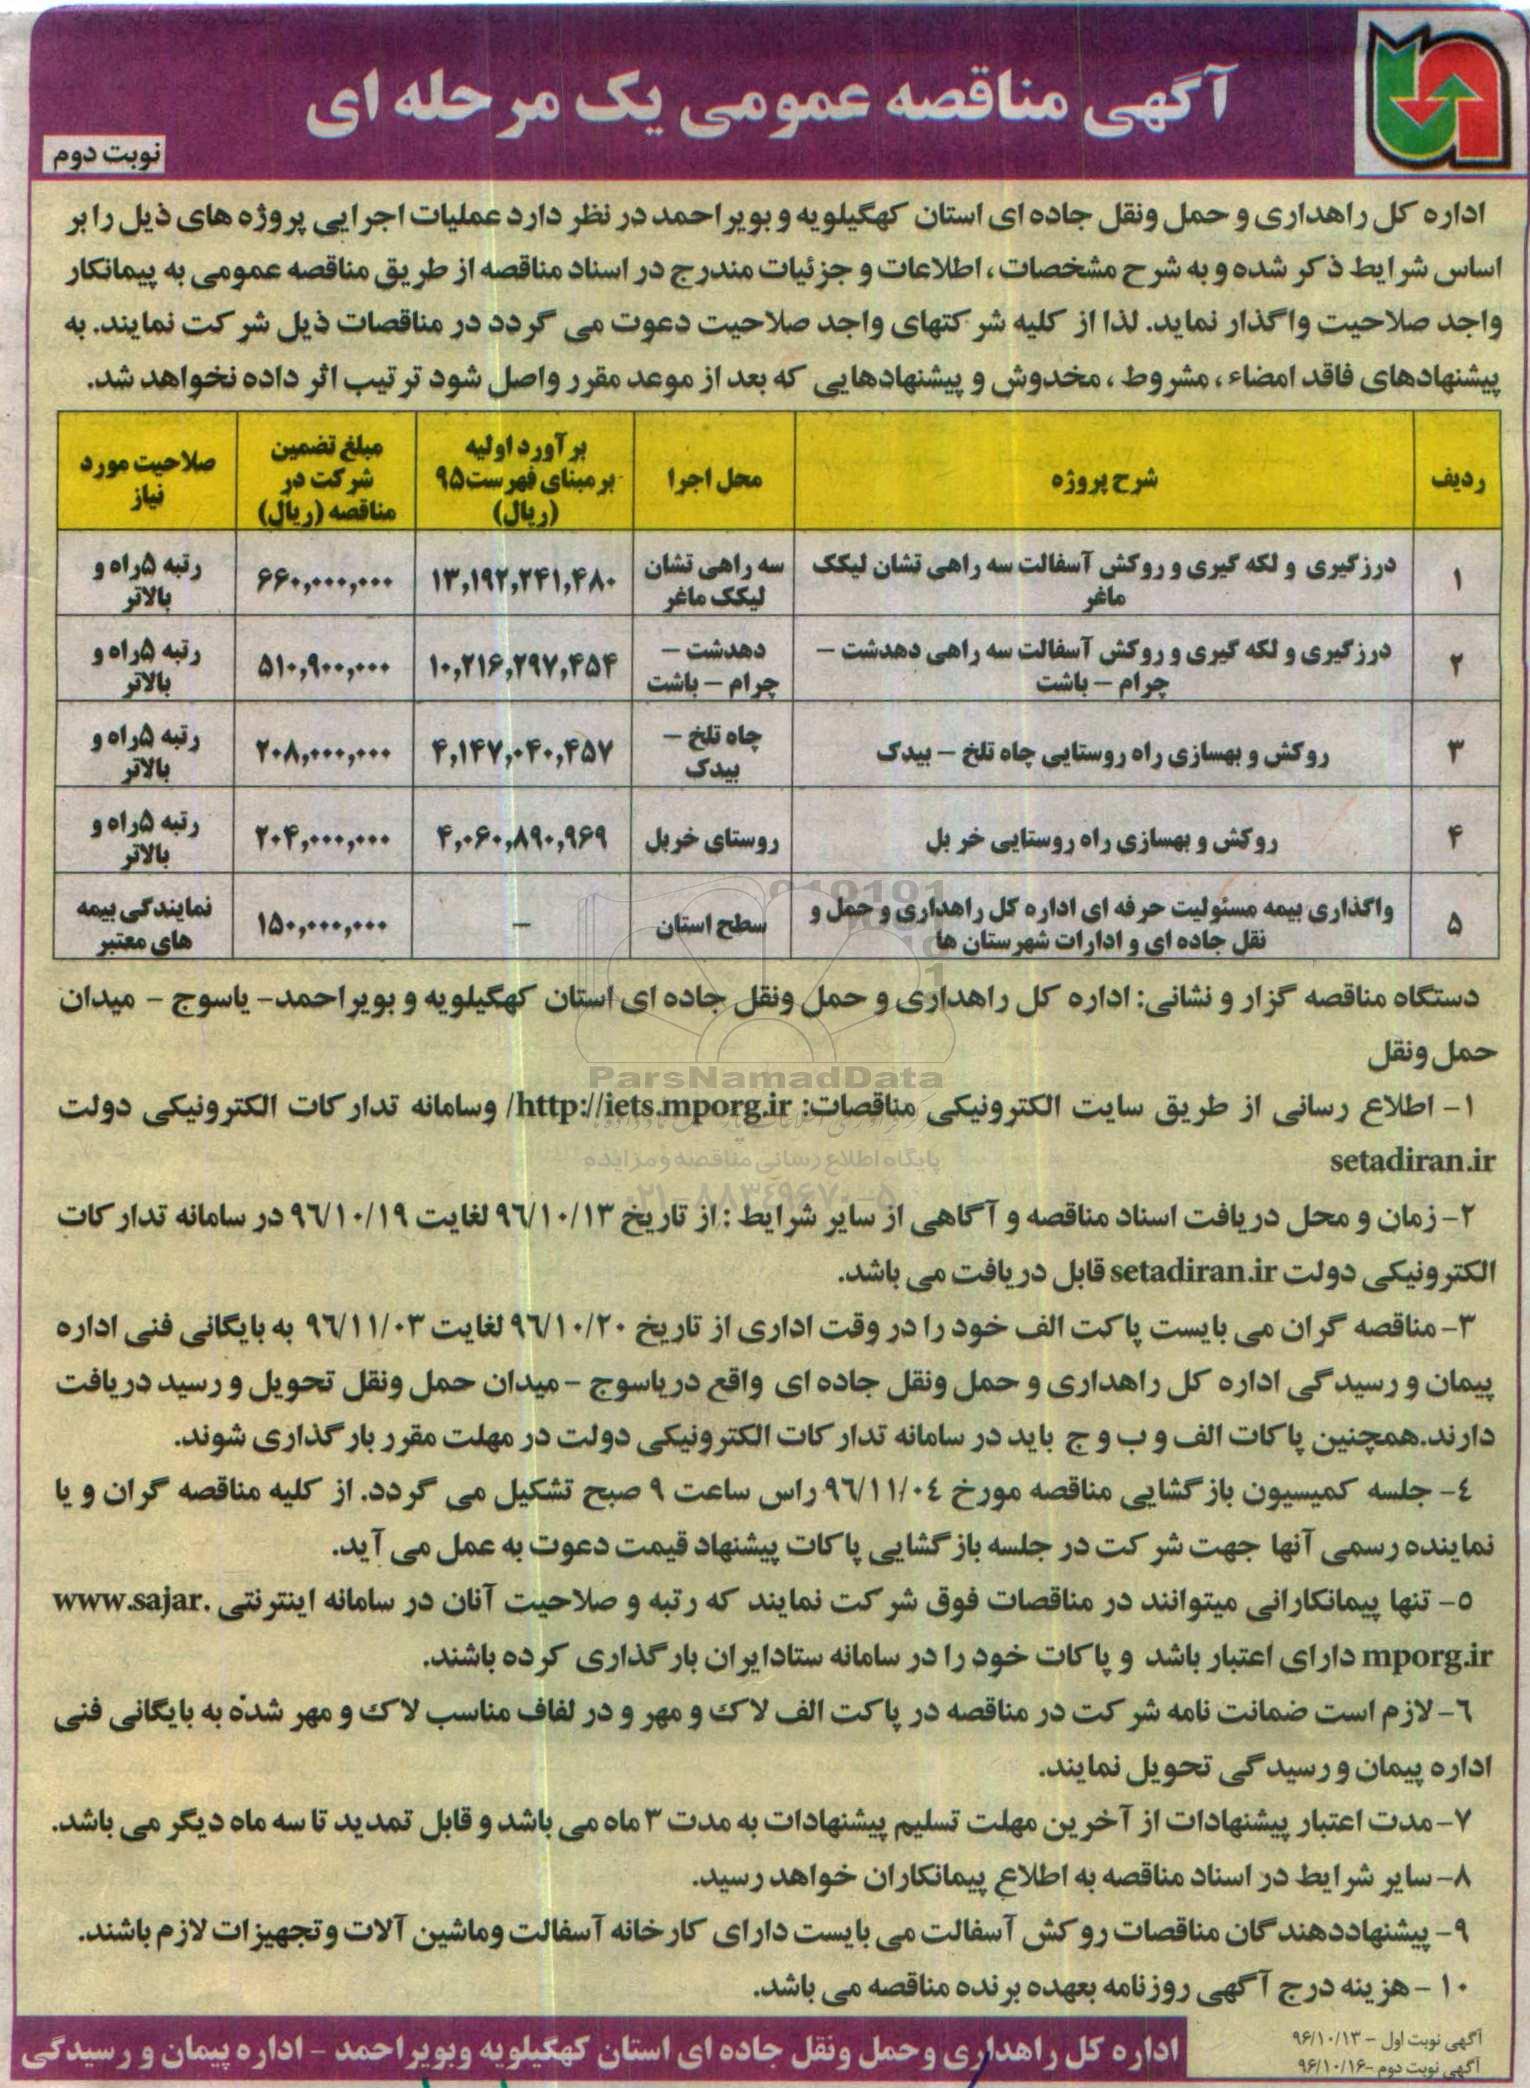 آگهی مناقصه عمومی یک مرحله ای
نوبت دوم
اداره کل راهداری و حمل ونقل جاده ای استان کهگیلویه و بویراحمد در نظر دارد عملیات اجرایی پروژه های ذیل را بر
اساس شرایط ذکر شده و به شرح مشخصات ، اطلاعات و جزئیات مندرج در اسناد مناقصه از طریق مناقصه عمومی به پیمانکار
واجد صلاحیت واگذار نماید. لذا از کلیه شرکتهای واجد صلاحیت دعوت می گردد در مناقصات ذیل شرکت نمایند. به
پیشنهادهای فاقد امضاء ، مشروط ، مخدوش و پیشنهادهایی که بعد از موعد مقرر واصل شود ترتیب اثر داده نخواهد شد.
ردیف
شرح پروژه
محل اجرا
برآورد اولیه
برمبنای فهرست۹۵
(ریال)
مبلغ تضمین
شرکت در
مناقصه (ریال)
صلاحیت مورد
نیاز
۱
درزگیری و لکه گیری و روکش آسفالت سه راهی تشان لیکک
ماغر
سه راهی تشان
لیکک ماغر
۱۳,۱۹۲,۲۴۱,۴۸۰
۶۶۰,۰۰۰,۰۰۰
رتبه ۵راه و
بالاتر
۲
درزگیری و لکه گیری و روکش آسفالت سه راهی دهدشت –
چرام – باشت
دهدشت –
چرام – باشت
۱۰,۲۱۶,۲۹۷,۴۵۴
۵۱۰,۹۰۰,۰۰۰
رتبه ۵راه و
بالاتر
۳
روکش و بهسازی راه روستایی چاه تلخ – بیدک
چاه تلخ –
بیدک
۴,۱۴۷,۰۴۰,۴۵۷
۲۰۸,۰۰۰,۰۰۰
رتبه ۵راه و
بالاتر
۴
روکش و بهسازی راه روستایی خر بل
روستای خربل
۴,۰۶۰,۸۹۰,۹۶۹
۲۰۴,۰۰۰,۰۰۰
رتبه ۵راه و
بالاتر
۵
واگذاری بیمه مسئولیت حرفه ای اداره کل راهداری و حمل و
نقل جاده ای و ادارات شهرستان ها
سطح استان
–
۱۵۰,۰۰۰,۰۰۰
نمایندگی بیمه
های معتبر
دستگاه مناقصه گزار و نشانی: اداره کل راهداری و حمل ونقل جاده ای استان کهگیلویه و بویراحمد- یاسوج - میدان
حمل ونقل
۱- اطلاع رسانی از طریق سایت الکترونیکی مناقصات: http://iets.mporg.ir/ وسامانه تدارکات الکترونیکی دولت
setadiran.ir
۲- زمان و محل دریافت اسناد مناقصه و آگاهی از سایر شرایط : از تاریخ ۹۶/۱۰/۱۳ لغایت ۹۶/۱۰/۱۹ در سامانه تدارکات
الکترونیکی دولت setadiran.ir قابل دریافت می باشد.
۳- مناقصه گران می بایست پاکت الف خود را در وقت اداری از تاریخ ۹۶/۱۰/۲۰ لغایت ۹۶/۱۱/۰۳ به بایگانی فنی اداره
پیمان و رسیدگی اداره کل راهداری و حمل ونقل جاده ای واقع در یاسوج - میدان حمل ونقل تحویل و رسید دریافت
دارند.همچنین پاکات الف و ب و ج باید در سامانه تدارکات الکترونیکی دولت در مهلت مقرر بارگذاری شوند.
۴- جلسه کمیسیون بازگشایی مناقصه مورخ ۹۶/۱۱/۰۴ راس ساعت ۹ صبح تشکیل می گردد. از کلیه مناقصه گران و یا
نماینده رسمی آنها جهت شرکت در جلسه بازگشایی پاکات پیشنهاد قیمت دعوت به عمل می آید.
۵- تنها پیمانکارانی میتوانند در مناقصات فوق شرکت نمایند که رتبه و صلاحیت آنان در سامانه اینترنتی www.sajar.
mporg.ir دارای اعتبار باشد و پاکات خود را در سامانه ستادایران بارگذاری کرده باشند.
۶- لازم است ضمانت نامه شرکت در مناقصه در پاکت الف لاک و مهر و در لفاف مناسب لاک و مهر شده به بایگانی فنی
اداره پیمان و رسیدگی تحویل نمایند.
۷- مدت اعتبار پیشنهادات از آخرین مهلت تسلیم پیشنهادات به مدت ۳ ماه می باشد و قابل تمدید تا سه ماه دیگر می باشد.
۸- سایر شرایط در اسناد مناقصه به اطلاع پیمانکاران خواهد رسید.
۹- پیشنهاددهندگان مناقصات روکش آسفالت می بایست دارای کارخانه آسفالت وماشین آلات وتجهیزات لازم باشند.
۱۰- هزینه درج آگهی روزنامه بعهده برنده مناقصه می باشد.
آگهی نوبت اول - ۹۶/۱۰/۱۳
آگهی نوبت دوم -۹۶/۱۰/۱۶
اداره کل راهداری وحمل ونقل جاده ای استان کهگیلویه وبویراحمد - اداره پیمان و رسیدگی
ParsNamadData
پایگاه اطلاع رسانی مناقصه و مزایده
۰۲۱-۸۸۳۴۹۶۷۰-۵